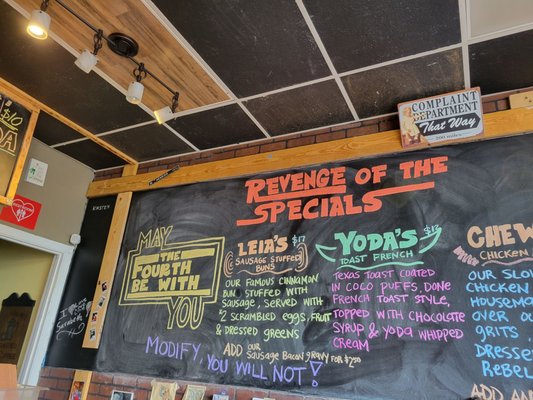 $10
DA
COMPLAINT
DEPARTMENT
That Way
200 miles
REVENGE OF THE
SPECIALS
MAY
THE
FOURTH
BE WITH
YOU
LEIA'S $12
SAUSAGE STUFFED
BUNS
OUR FAMOUS CINNAMON
BUN STUFFED WITH
SAUSAGE, SERVED WITH
2 SCRAMBLED EGGS, FRUIT
& DRESSED GREENS
ADD OUR
SAUSAGE BACON GRAVY FOR $2.50
YODA'S $12
TOAST FRENCH
TEXAS TOAST COATED
IN COCO PUFFS, DONE
FRENCH TOAST STYLE,
TOPPED WITH CHOCOLATE
SYRUP & YODA WHIPPED
CREAM
CHEW
CHICKEN
OUR SLO
CHICKEN
HOUSEMA
OVER OU
GRITS,
DRESSE
REBEL
ADD AN
MODIFY, YOU WILL NOT!